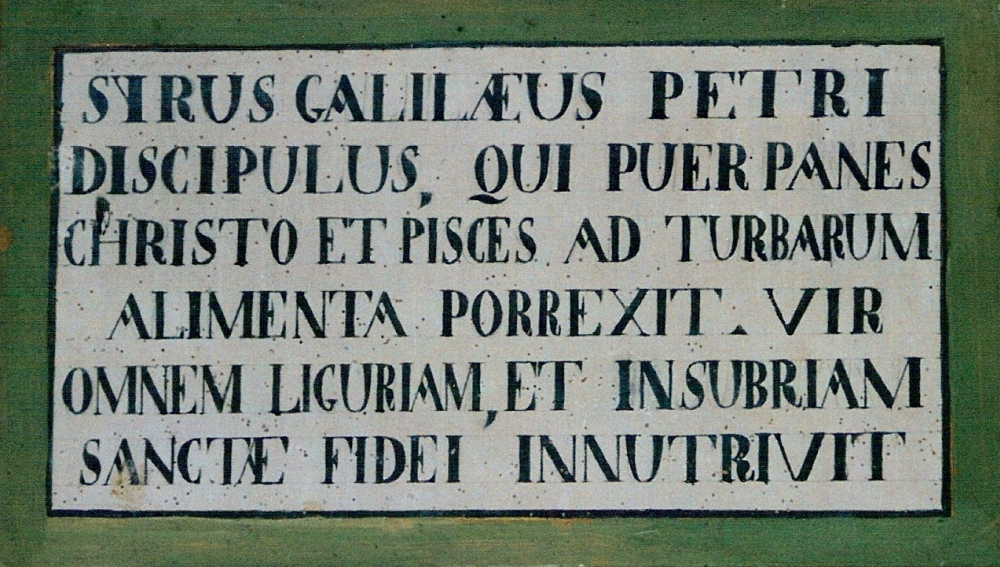 SYRUS GALILÆUS PETRI
DISCIPULUS, QUI PUER PANES
CHRISTO ET PISCES AD TURBARUM
ALIMENTA PORREXIT. VIR
OMNEM LIGURIAM, ET INSUBRIAM
SANCTÆ FIDEI INNUTRIVIT